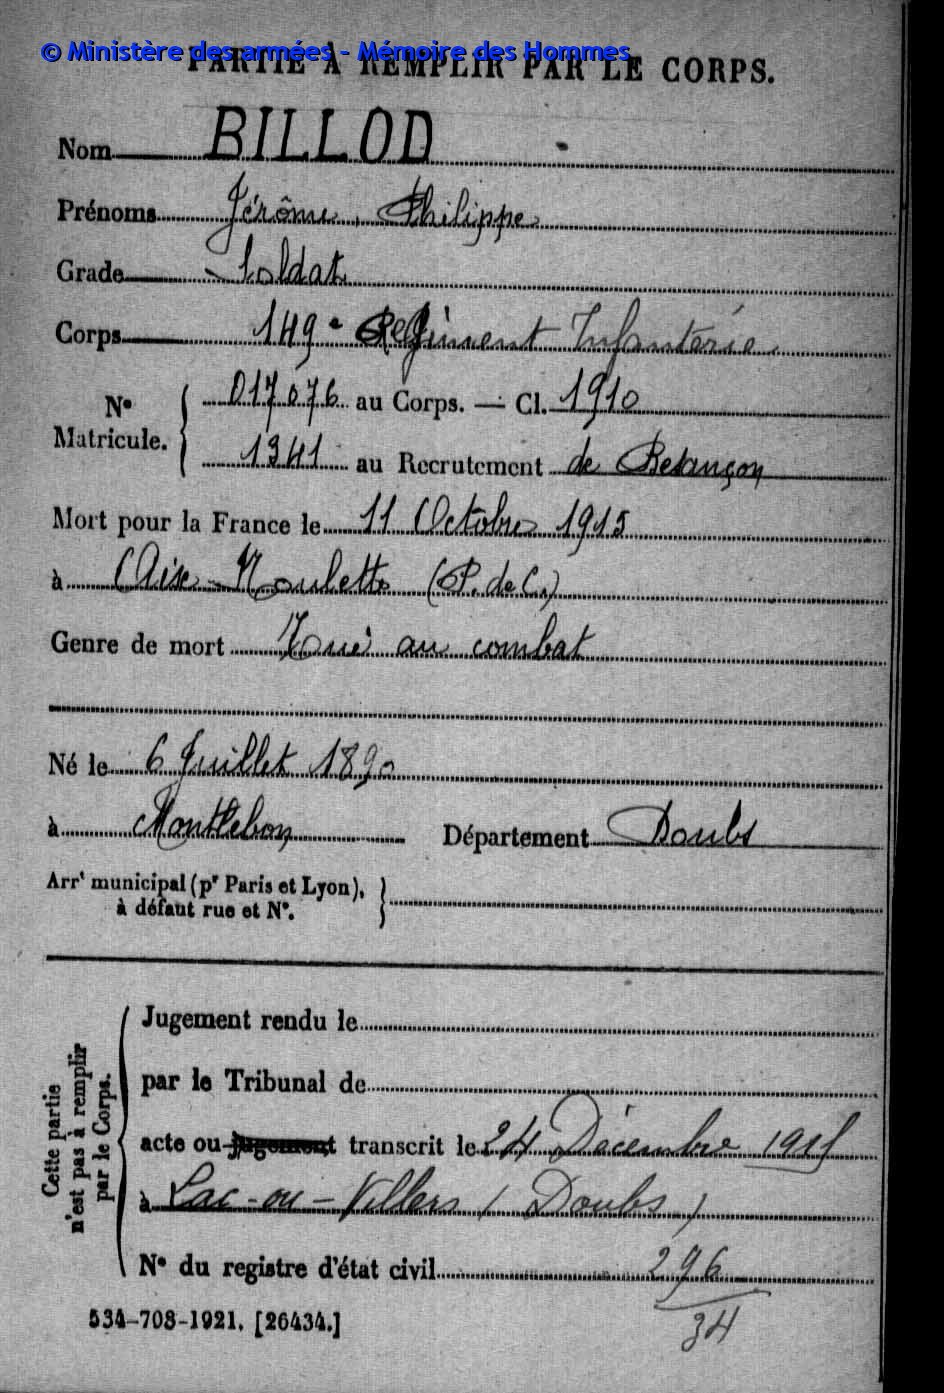 © Ministère des armées - Mémoire des Hommes
PARTIE À REMPLIR PAR LE CORPS.
Nom BILLOD
Prénoms Jérôme, Philippe
Grade Soldat
Corps 149e Régiment Infanterie
N° Matricule. { 017076 au Corps. — Cl. 1910
1341 au Recrutement de Besançon
Mort pour la France le 11 Octobre 1915
à Aix-Noulette (P. de C.)
Genre de mort Tué au combat
Né le 6 Juillet 1890
à Montlebon Département Doubs
Arrt municipal (pr Paris et Lyon), }
à défaut rue et N°.
Cette partie n'est pas à remplir par le Corps.
Jugement rendu le
par le Tribunal de
acte ou jugement transcrit le 24 Décembre 1915
à Lac-ou-Villers (Doubs)
N° du registre d'état civil 296
34
534-708-1921. [26434.]